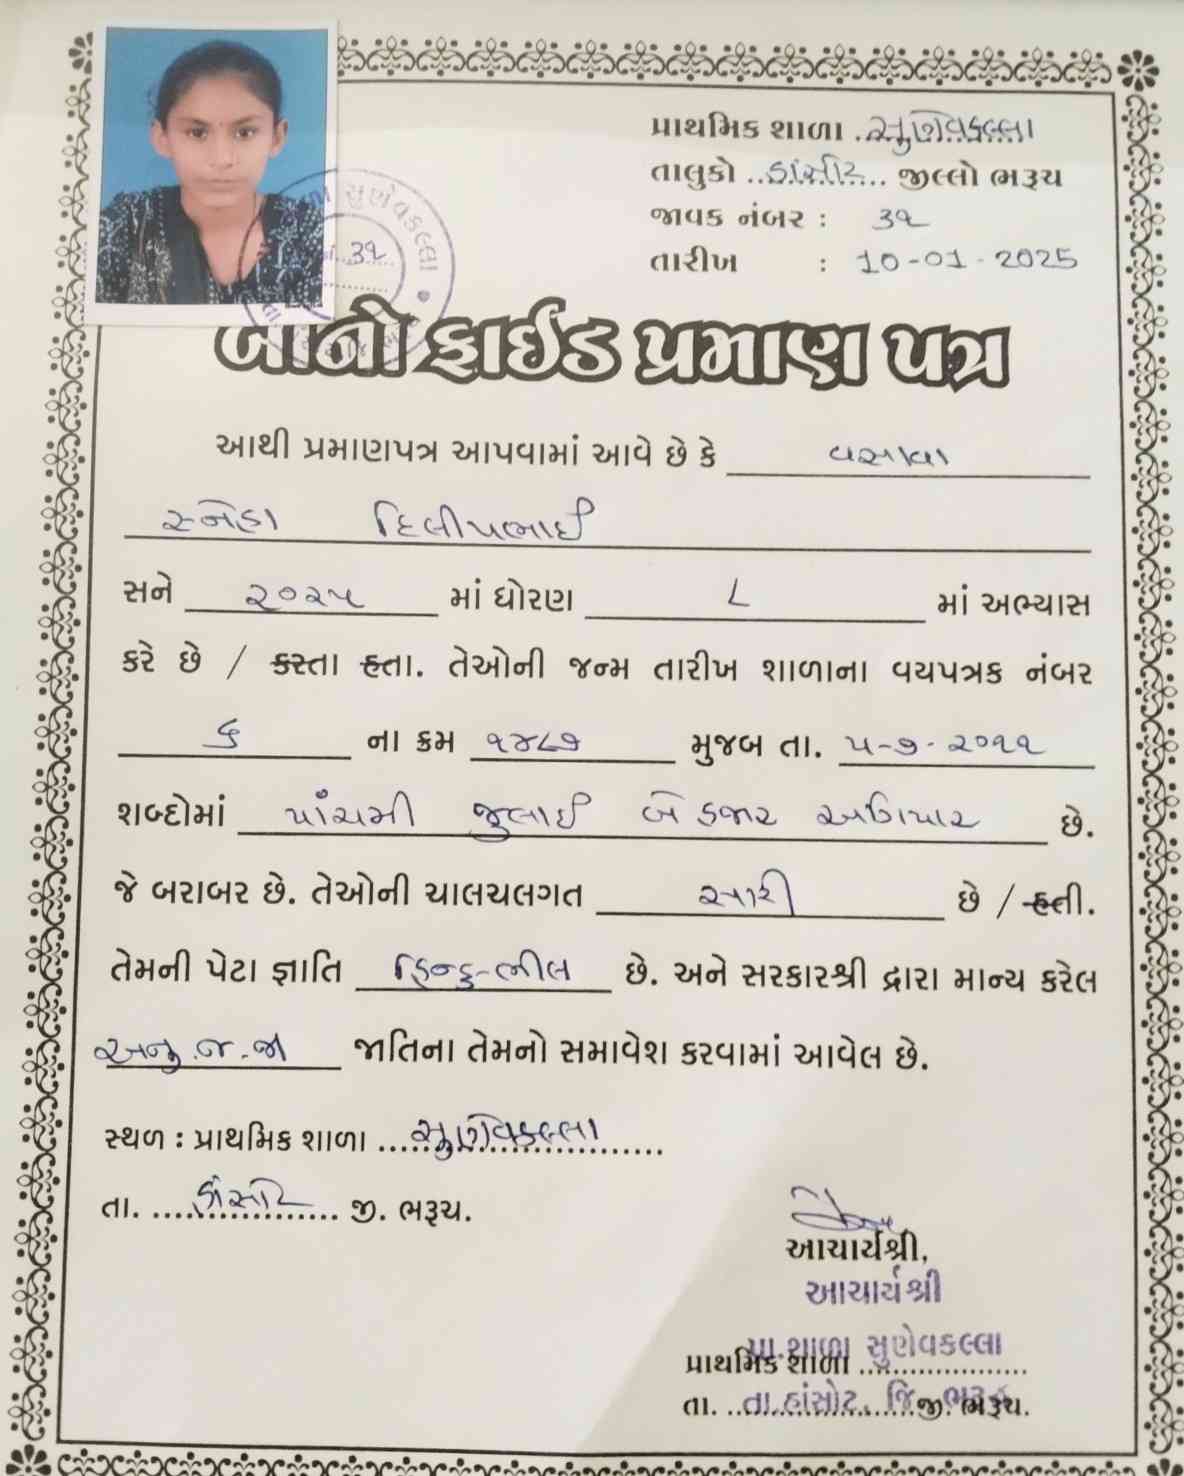 પ્રાથમિક શાળા .સુણેવકલ્લા
તાલુકો ..હાંસોટ... જીલ્લો ભરૂચ
જાવક નંબર : ૩૧
તારીખ : 10-01-2025
સુણેવકલ્લા
૩૧
બોનોફાઈડ પ્રમાણ પત્ર
આથી પ્રમાણપત્ર આપવામાં આવે છે કે વસાવા
સ્નેહા દિલીપભાઈ
સને ૨૦૨૫ માં ધોરણ ૮ માં અભ્યાસ
કરે છે / કરતા હતા. તેઓની જન્મ તારીખ શાળાના વયપત્રક નંબર
૬ ના ક્રમ ૧૪૮૭ મુજબ તા. ૫-૭-૨૦૧૧
શબ્દોમાં પાંચમી જુલાઈ બે હજાર અગિયાર છે.
જે બરાબર છે. તેઓની ચાલચલગત સારી છે / હતી.
તેમની પેટા જ્ઞાતિ હિન્દુ-ભીલ છે. અને સરકારશ્રી દ્વારા માન્ય કરેલ
અનુ.જ.જા જાતિના તેમનો સમાવેશ કરવામાં આવેલ છે.
સ્થળ : પ્રાથમિક શાળા ....સુણેવકલ્લા......
તા. ....હાંસોટ.... જી. ભરૂચ.
આચાર્યશ્રી,
આચાર્યશ્રી
પ્રા.શાળા સુણેવકલ્લા
પ્રાથમિક શાળા ....................
તા.હાંસોટ, જિ.ભરૂચ
તા. .................... જી. ભરૂચ.